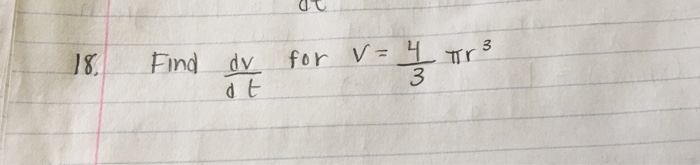 dt
18. Find dv/dt for V = 4/3 πr³